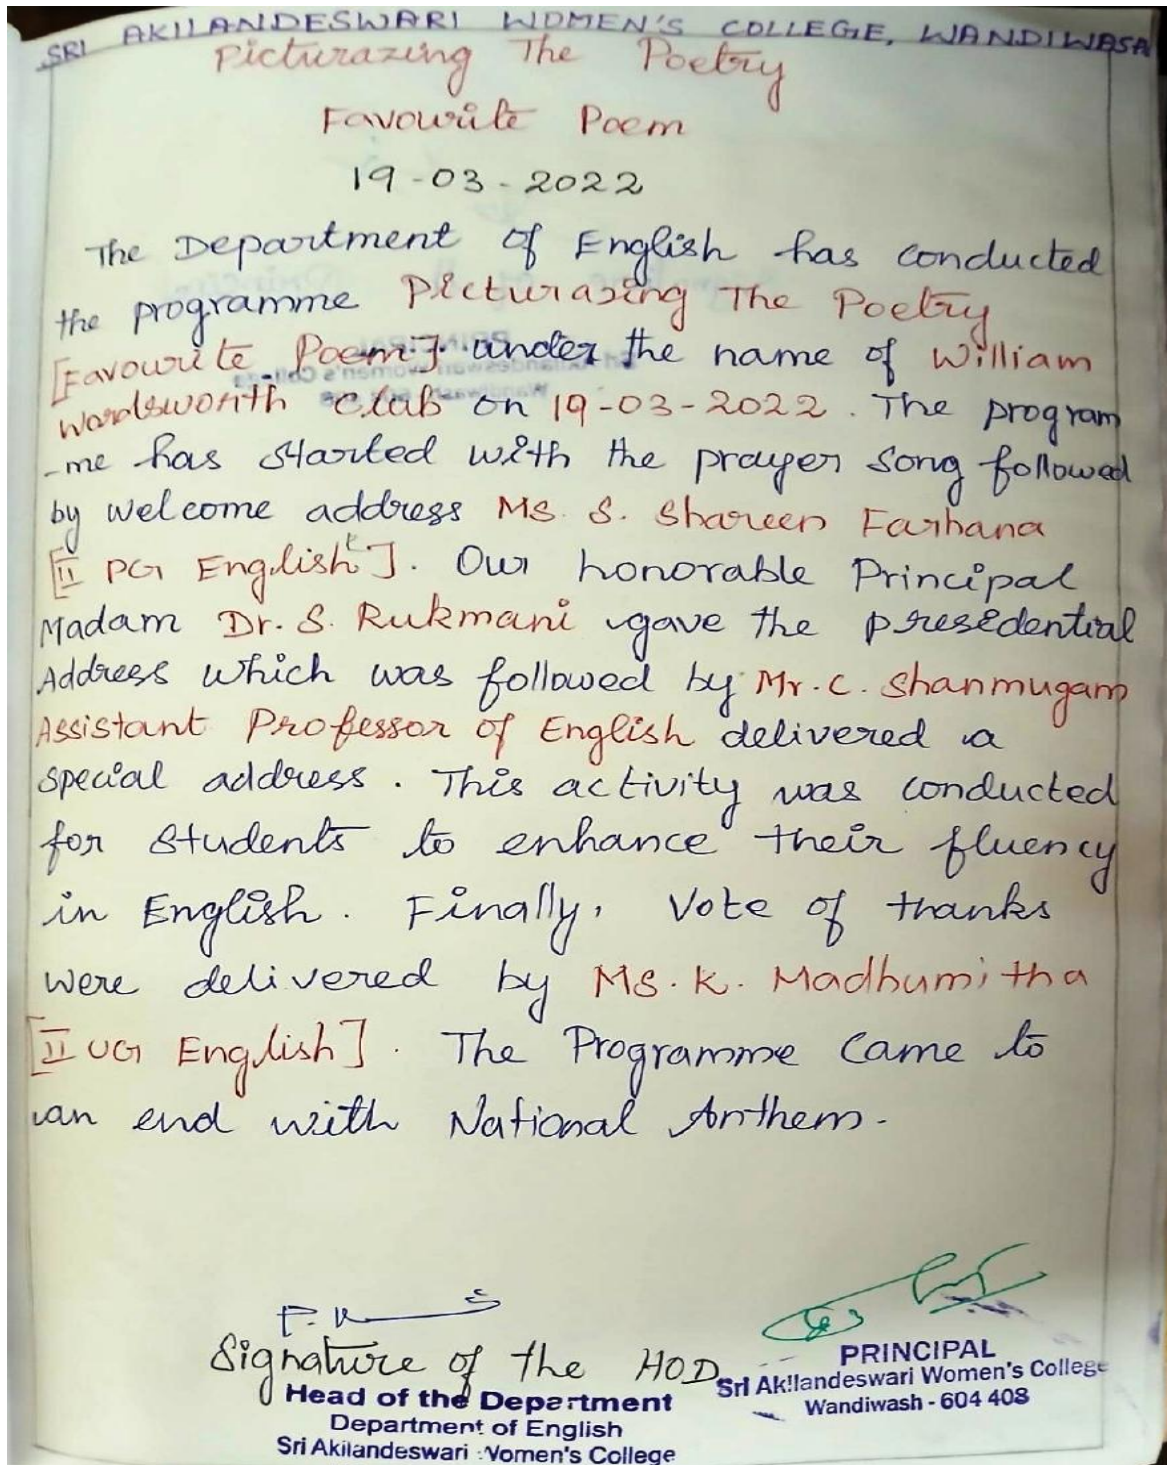 SRI AKILANDESWARI WOMEN'S COLLEGE, WANDIWASH
Picturazing The Poetry
Favourite Poem
19-03-2022
The Department of English has conducted
the programme Picturazing The Poetry
[Favourite Poem]. under the name of William
Wordsworth Club on 19-03-2022. The program
-me has started with the prayer song followed
by welcome address Ms. S. Shareen Farhana
[II PG English]. Our honorable Principal
Madam Dr. S. Rukmani gave the presidential
Address which was followed by Mr. C. Shanmugam
Assistant Professor of English delivered a
special address. This activity was conducted
for students to enhance their fluency
in English. Finally, Vote of thanks
were delivered by Ms. K. Madhumitha
[II UG English]. The Programme came to
an end with National Anthem.
Signature of the HOD
Head of the Department
Department of English
Sri Akilandeswari Women's College
PRINCIPAL
Sri Akilandeswari Women's College
Wandiwash - 604 408